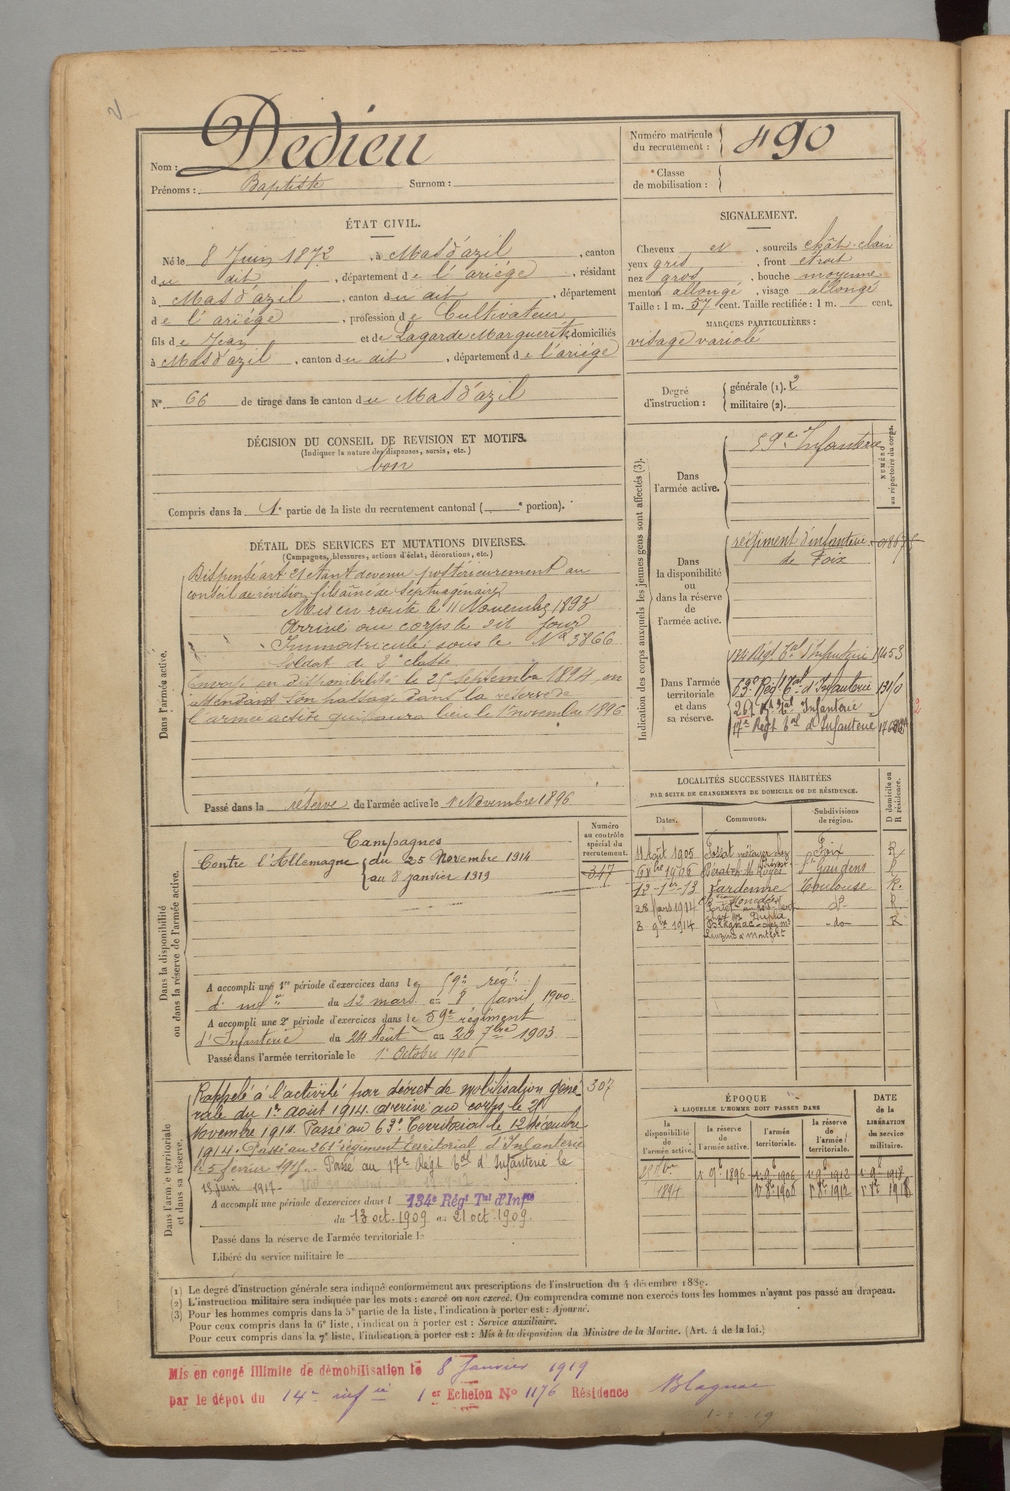 Nom : Dedieu
Prénoms : Baptiste Surnom :
Numéro matricule du recrutement : 490
Classe de mobilisation :
ÉTAT CIVIL.
Né le 8 Juin 1872, à Mas d'azil, canton
du dit, département de l'ariége, résidant
à Mas d'azil, canton du dit, département
de l'ariége, profession de Cultivateur
fils de Jean et de Lagarde Marguerite, domiciliés
à Mas d'azil, canton du dit, département de l'ariége
N° 66 de tirage dans le canton du Mas d'azil
SIGNALEMENT.
Cheveux et, sourcils chât-clair
yeux gris, front étroit
nez gros, bouche moyenne
menton allongé, visage allongé
Taille : 1 m. 57 cent. Taille rectifiée : 1 m. cent.
MARQUES PARTICULIÈRES :
visage variolé
Degré d'instruction : générale (1). 2
militaire (2).
DÉCISION DU CONSEIL DE REVISION ET MOTIFS.
(Indiquer la nature des dispenses, sursis, etc.)
bon
Compris dans la 1e partie de la liste du recrutement cantonal ( e portion).
DÉTAIL DES SERVICES ET MUTATIONS DIVERSES.
(Campagnes, blessures, actions d'éclat, décorations, etc.)
Dans l'armée active.
Dispensé art 21 étant devenu postérieurement au
conseil de révision fils aîné de septuagénaire
Mis en route le 11 Novembre 1893
Arrivé au corps le dit jour
Immatriculé sous le N° 3866
Soldat de 2e classe
Envoyé en disponibilité le 25 septembre 1894, en
attendant son passage dans la réserve de
l'armée active qui aura lieu le 1er novembre 1896
Passé dans la réserve de l'armée active le 1 Novembre 1896
Indication des corps auxquels les jeunes gens sont affectés (3).
NUMÉRO au répertoire du corps.
Dans l'armée active.
59e Infanterie
Dans la disponibilité ou dans la réserve de l'armée active.
régiment d'infanterie
de Foix
Dans l'armée territoriale et dans sa réserve.
134 Régt Tal d'Infanterie 1453
63e Régt Tal d'Infanterie 1310
261 Tal Infanterie
17e Régt Tal d'Infanterie
LOCALITÉS SUCCESSIVES HABITÉES
PAR SUITE DE CHANGEMENTS DE DOMICILE OU DE RÉSIDENCE.
D domicile ou R résidence.
Dates. Communes. Subdivisions de région.
11 Août 1905 Foix D
1906 St Gaudens R
Toulouse R.
28 Mars 1914 do R
3 9bre 1914 Blagnac -do- R
Dans la disponibilité ou dans la réserve de l'armée active.
Numéro au contrôle spécial du recrutement.
317
Campagnes
Contre l'Allemagne du 25 Novembre 1914
au 8 janvier 1919
A accompli une 1re période d'exercices dans le 59e régt
d'infie du 12 mars au 8 avril 1900
A accompli une 2e période d'exercices dans le 59e régiment
d'Infanterie du 24 Août au 20 7bre 1903
Passé dans l'armée territoriale le 1er Octobre 1906
Dans l'armée territoriale et dans sa réserve.
307
Rappelé à l'activité par décret de mobilisation géné-
rale du 1er aout 1914. Arrivé au corps le 25
Novembre 1914. Passé au 63e Territorial le 12 décembre
1914. Passé au 261e régiment territorial d'Infanterie
le 5 février 1915. Passé au 17e Régt Tal d'Infanterie le
15 juin 1917.
A accompli une période d'exercices dans l 134e Régt Tal d'Infie
du 13 oct. 1909 au 21 oct. 1909.
Passé dans la réserve de l'armée territoriale le
Libéré du service militaire le
ÉPOQUE
À LAQUELLE L'HOMME DOIT PASSER DANS
DATE de la LIBÉRATION du service militaire.
la disponibilité de l'armée active.
la réserve de l'armée active.
l'armée territoriale.
la réserve de l'armée territoriale.
1894 1 9b 1896 1 9b 1906 1 9b 1912 1 9b 1918
1 8bre 1906 1 8bre 1912 1 8bre 1918
(1) Le degré d'instruction générale sera indiqué conformément aux prescriptions de l'instruction du 4 décembre 1889.
(2) L'instruction militaire sera indiquée par les mots : exercé ou non exercé. On comprendra comme non exercés tous les hommes n'ayant pas passé au drapeau.
(3) Pour les hommes compris dans la 5e partie de la liste, l'indication à porter est : Ajourné.
Pour ceux compris dans la 6e liste, l'indication à porter est : Service auxiliaire.
Pour ceux compris dans la 7e liste, l'indication à porter est : Mis à la disposition du Ministre de la Marine. (Art. 4 de la loi.)
Mis en congé illimité de démobilisation le 8 Janvier 1919
par le dépot du 14e infie 1er Echelon N° 1176 Résidence Blagnac